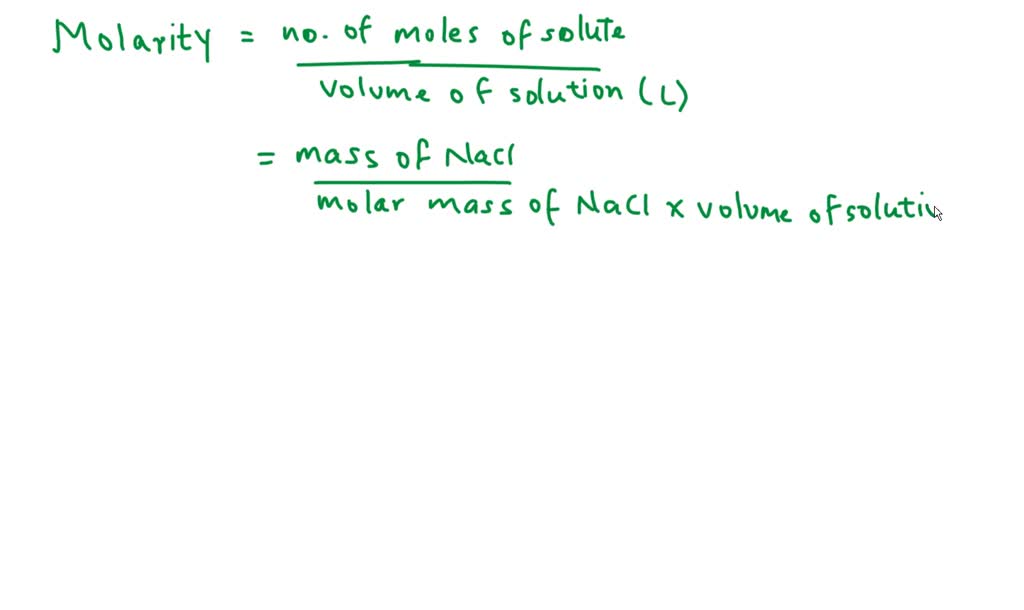 Molarity = no. of moles of solute
volume of solution (L)
= mass of NaCl
molar mass of NaCl x volume of soluti